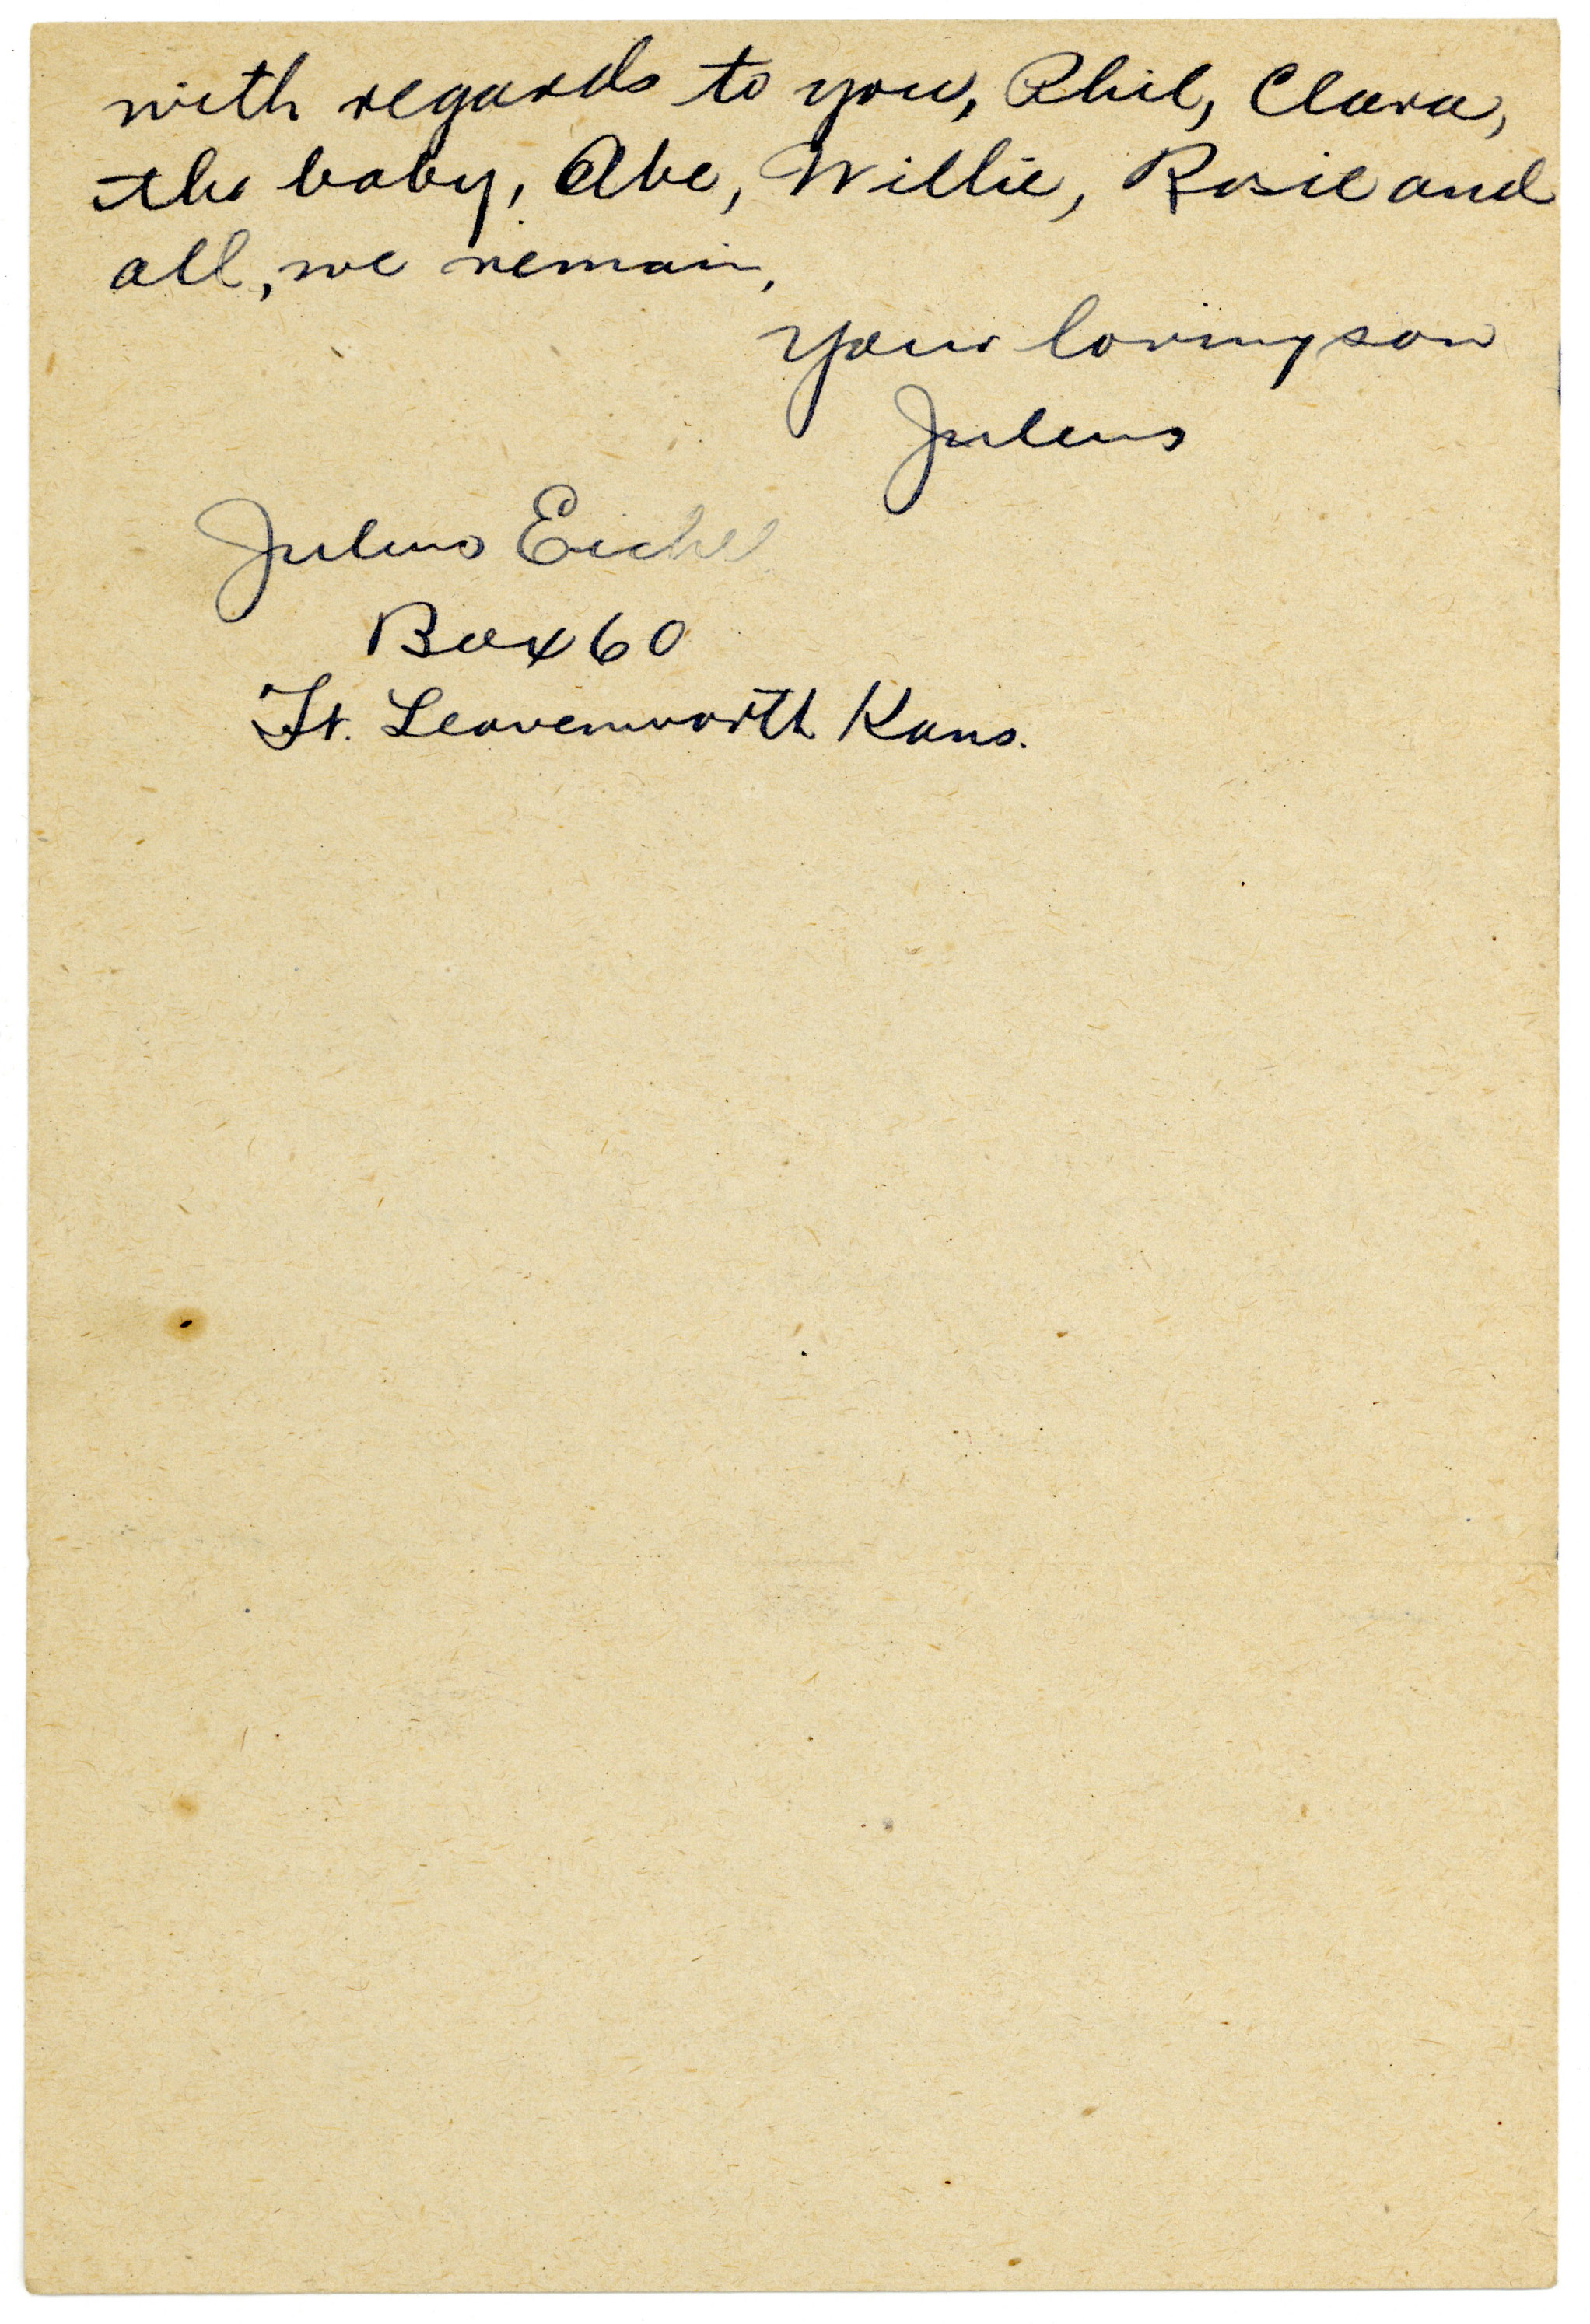 with regards to you, Phil, Clara,
the baby, Abe, Willie, Rosie and
all, we remain,
Your loving son
Julius
Julius Eichel
Box 60
Ft. Leavenworth Kans.